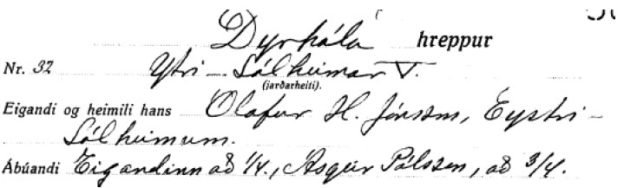 Dyrhóla hreppur
Nr. 32 Ytri-Sólheimar V.
(jarðarheiti).
Eigandi og heimili hans Ólafur H. Jónsson, Eystri-
Sólheimum.
Ábúandi Eigandinn að 1/4., Ásgeir Pálsson, að 3/4.